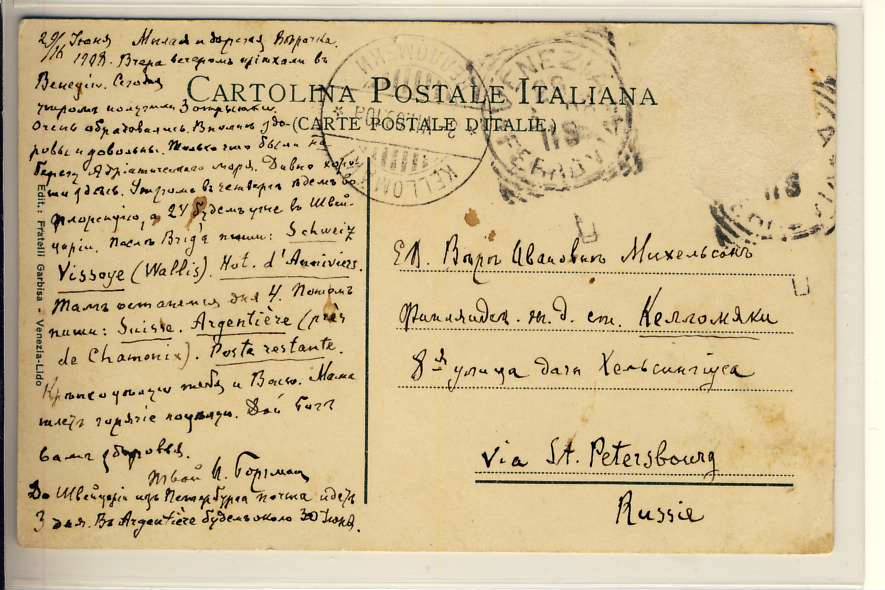 29/16 Іюня Милая и дорогая Вѣрочка.
1908. Вчера вечеромъ пріѣхали въ
Венецію. Сегодня
утромъ получили 3 открытки.
Очень обрадовались. Вполнѣ здо-
ровы и довольны. Только что были на
берегу Адріатическаго моря. Дивно хоро-
шо здѣсь. Утромъ въ четвергъ ѣдемъ во
Флоренцію, а 24 будемъ уже въ Швей-
царіи. Послѣ Brig'a пиши: Schweiz
Vissoye (Wallis). Hot. d'Anniviers.
Тамъ останемся дня 4. Потомъ
пиши: Suisse. Argentière (près
de Chamonix). Poste restante.
Крѣпко цѣлую тебя и Мама
шлетъ горячіе поцѣлуи. Дай Богъ
вамъ здоровья.
твой И. Боргман
До Швейцаріи изъ Петербурга почта идетъ
3 дня. Въ Argentière будемъ около 30 Іюня.
CARTOLINA POSTALE ITALIANA
(CARTE POSTALE D'ITALIE.)
Edit.: Fratelli Garbisa - Venezia-Lido
KELLOMÄKI
VENEZIA
FERROVIA
Е. В. Вѣрѣ Ивановнѣ Михельсонъ
Финляндск. ж. д. ст. Келломяки
8я улица дача Хельсингіуса
via St. Petersbourg
Russie